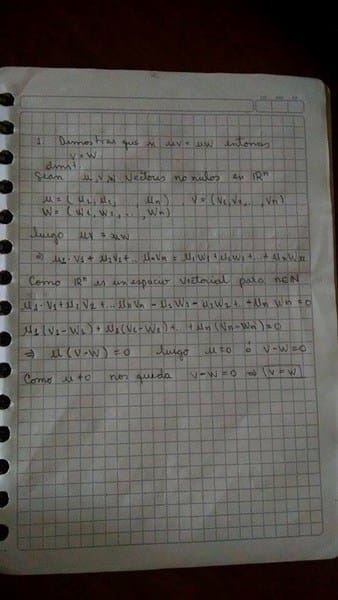 1. Demostrar que si uv = uw entonces
v = w.
dmst:
Sean u, v, w vectores no nulos en ℝⁿ
u = (u₁, u₂, . . , uₙ) , v = (v₁, v₂, . . , vₙ)
w = (w₁, w₂, . . . , wₙ)
luego uv = uw
⇒ u₁·v₁ + u₂v₂ + .. uₙvₙ = u₁w₁ + u₂w₂ + .. + uₙwₙ
Como ℝⁿ es un espacio vectorial para n∈ℕ
u₁·v₁ + u₂v₂ + ... uₙvₙ - u₁w₁ - u₂w₂ + .. + uₙwₙ = 0
u₁(v₁-w₁) + u₂(v₂-w₂) + .. + uₙ(vₙ-wₙ) = 0
⇒ u(v-w) = 0 luego u=0 ó v-w=0
Como u≠0 nos queda v-w=0 ⇒ v=w